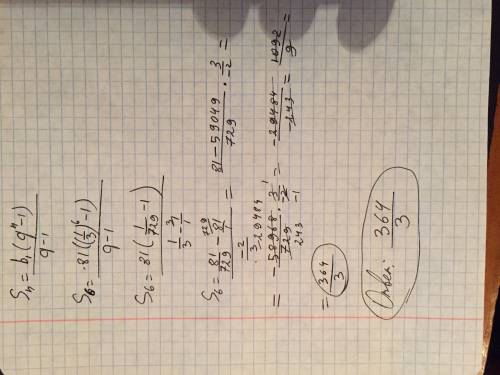 Sₙ = b₁(qⁿ-1) / q-1
S₆ = 81((1/3)⁶-1) / q-1
S₆ = 81(1/729 - 1) / 1/3 - 1
S₆ = 81/729 - 81/1 / -2/3 = 81-59049 / 729 · 3/-2 =
= -58968/729 · 3/-2 = -29484/-243 = 1092/9 =
= 364/3
Ответ: 364/3